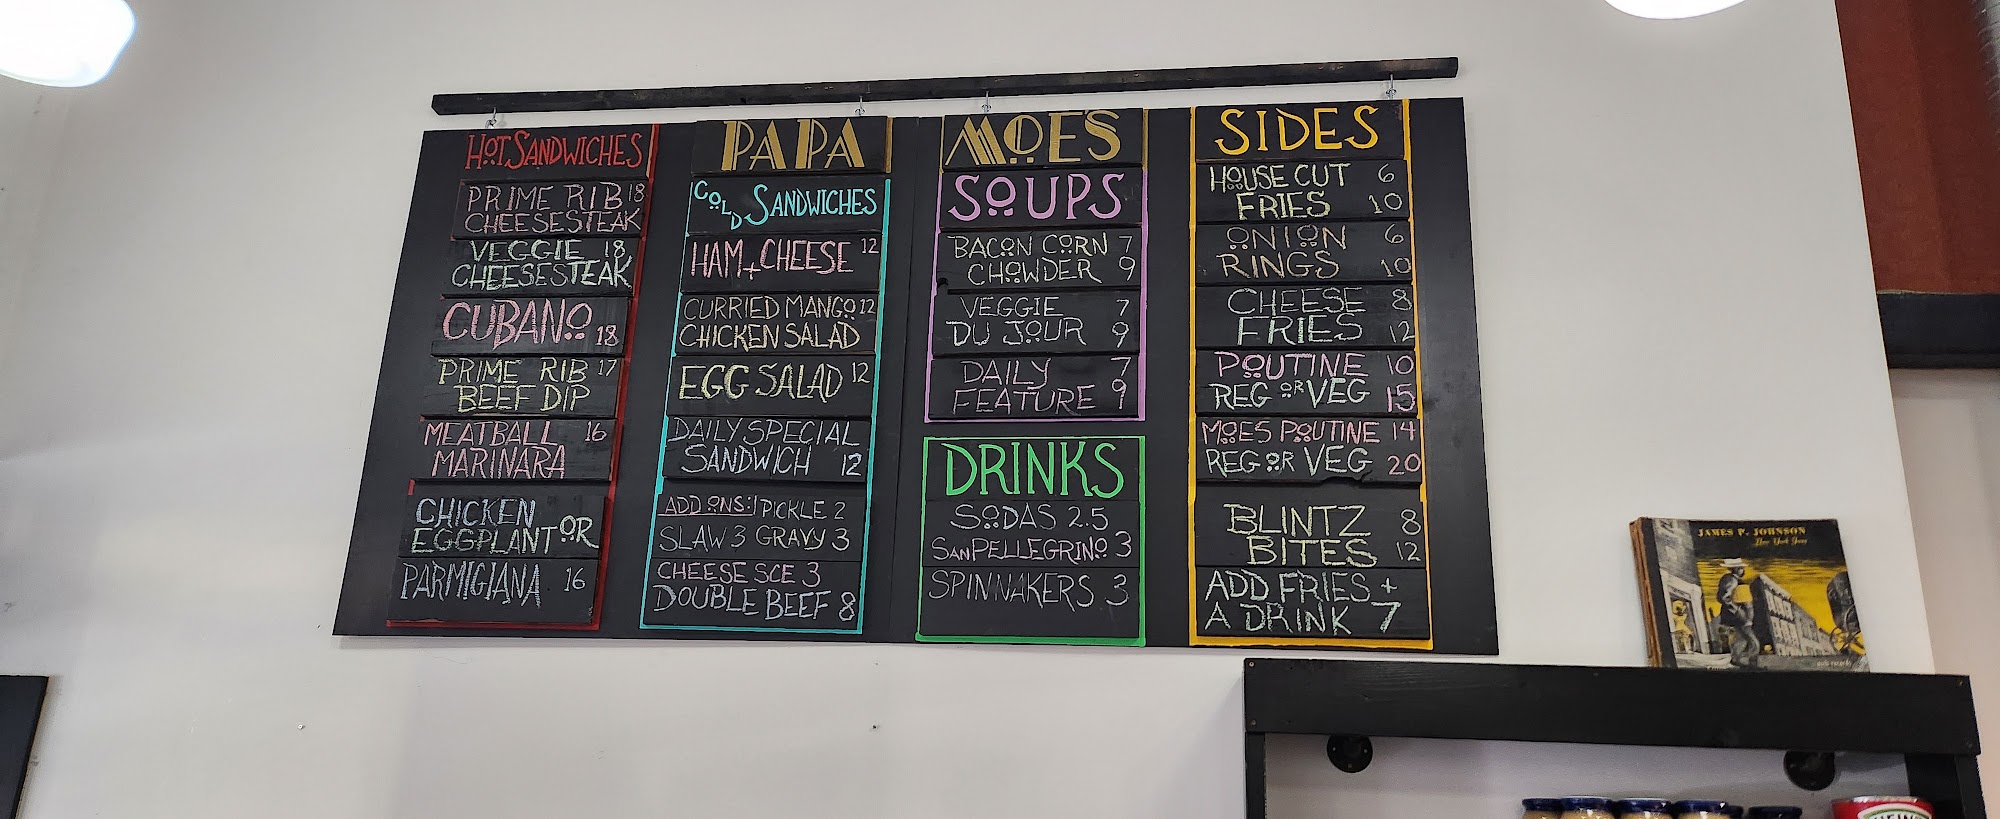 HOT SANDWICHES
PRIME RIB 18
CHEESESTEAK
VEGGIE 18
CHEESESTEAK
CUBANO 18
PRIME RIB 17
BEEF DIP
MEATBALL 16
MARINARA
CHICKEN OR
EGGPLANT
PARMIGIANA 16
PAPA
COLD SANDWICHES
HAM + CHEESE 12
CURRIED MANGO 12
CHICKEN SALAD
EGG SALAD 12
DAILY SPECIAL
SANDWICH 12
ADD ONS: PICKLE 2
SLAW 3 GRAVY 3
CHEESE SCE 3
DOUBLE BEEF 8
MOE'S
SOUPS
BACON CORN 7
CHOWDER 9
VEGGIE 7
DU JOUR 9
DAILY 7
FEATURE 9
DRINKS
SODAS 2.5
SAN PELLEGRINO 3
SPINNAKERS 3
SIDES
HOUSE CUT 6
FRIES 10
ONION 6
RINGS 10
CHEESE 8
FRIES 12
POUTINE 10
REG OR VEG 15
MOES POUTINE 14
REG OR VEG 20
BLINTZ 8
BITES 12
ADD FRIES +
A DRINK 7
JAMES P. JOHNSON
New York Jazz
HEINZ